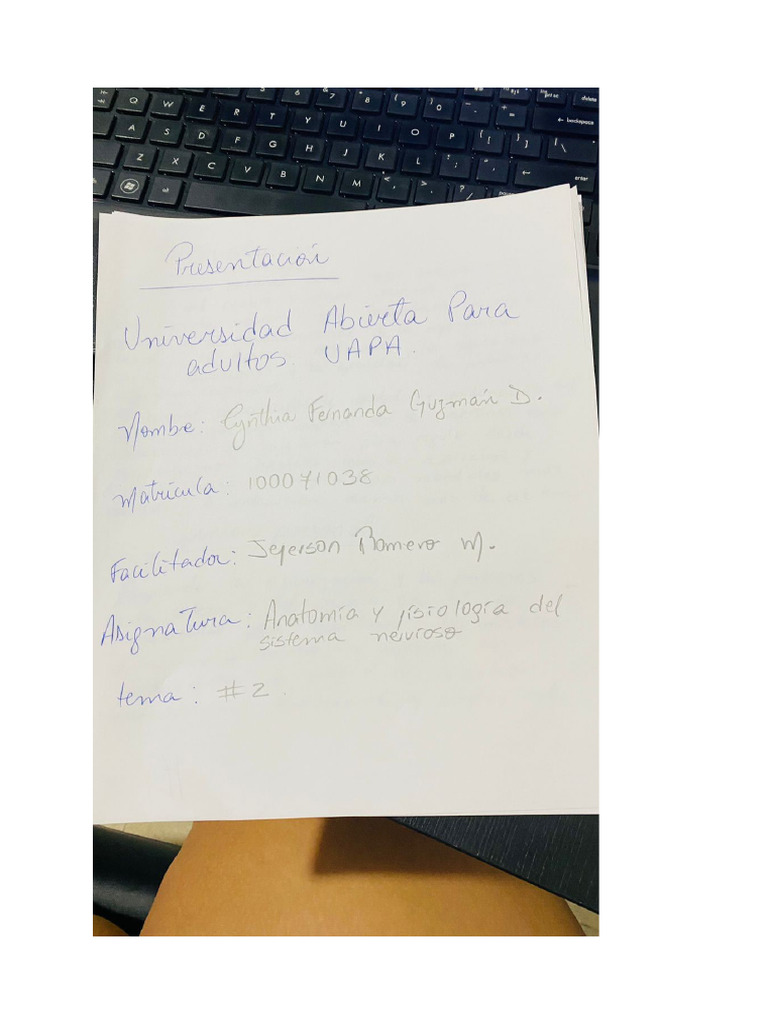 Presentación
Universidad Abierta Para
adultos. UAPA.
Nombre: Cynthia Fernanda Guzmán D.
Matrícula: 100071038
Facilitador: Jeferson Romero M.
Asignatura: Anatomía y fisiología del
sistema nervioso
tema: #2.